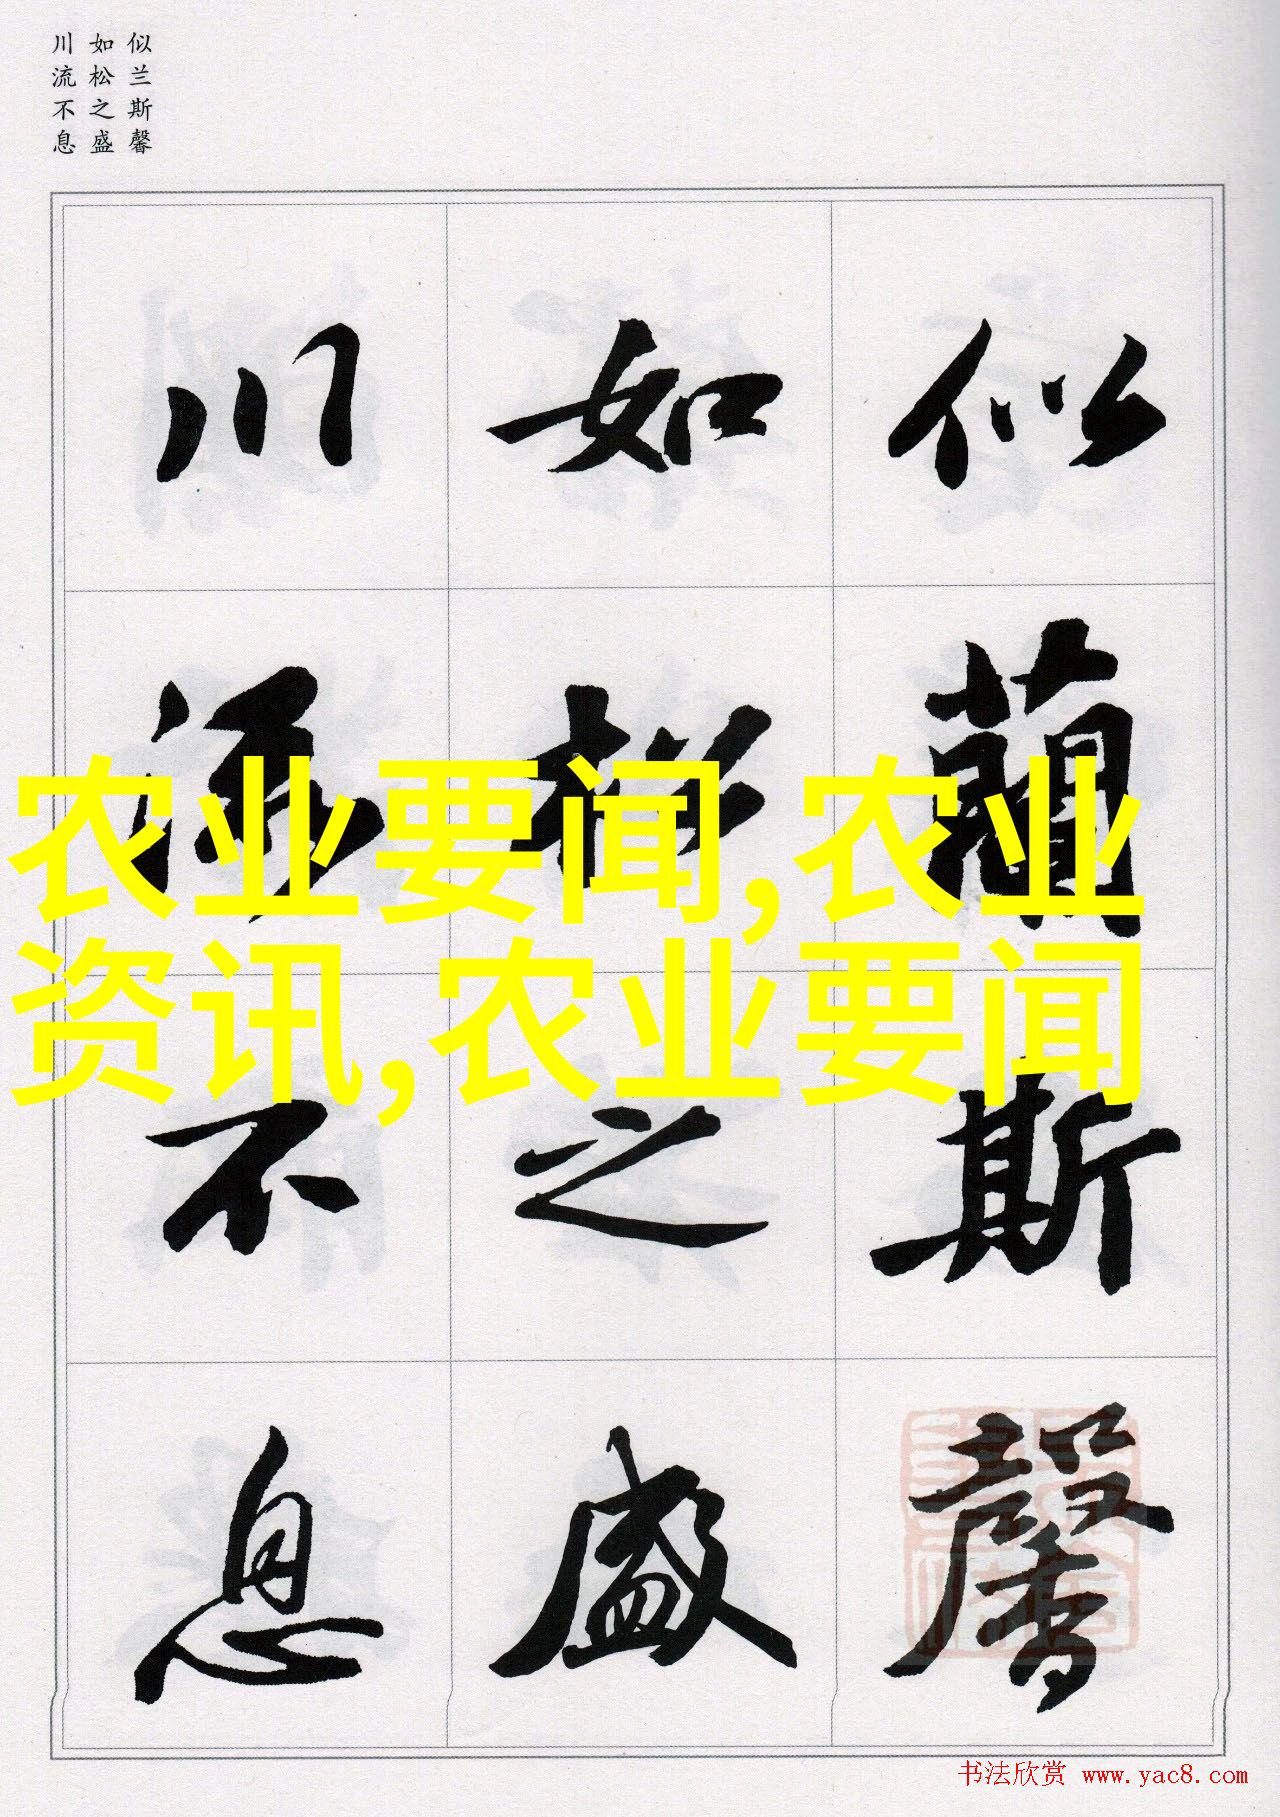 似兰斯馨
如松之盛
川流不息
似蘭斯馨
如松之盛
川流不息
农业要闻,农业
资讯,农业要闻
书法欣赏 www.yac8.com